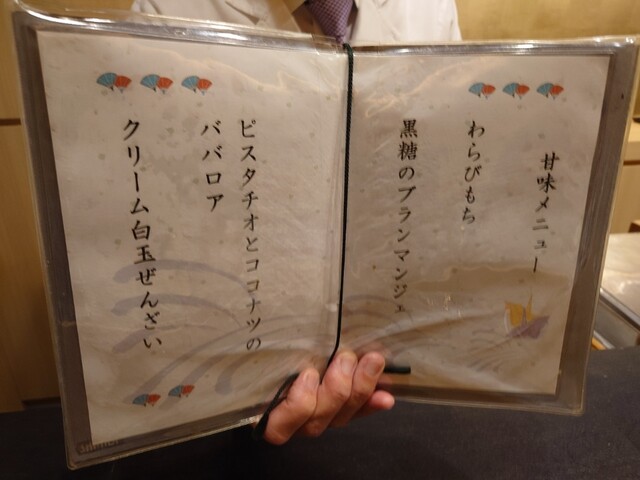 甘味メニュー
わらびもち
黒糖のブランマンジェ
ピスタチオとココナツの
ババロア
クリーム白玉ぜんざい